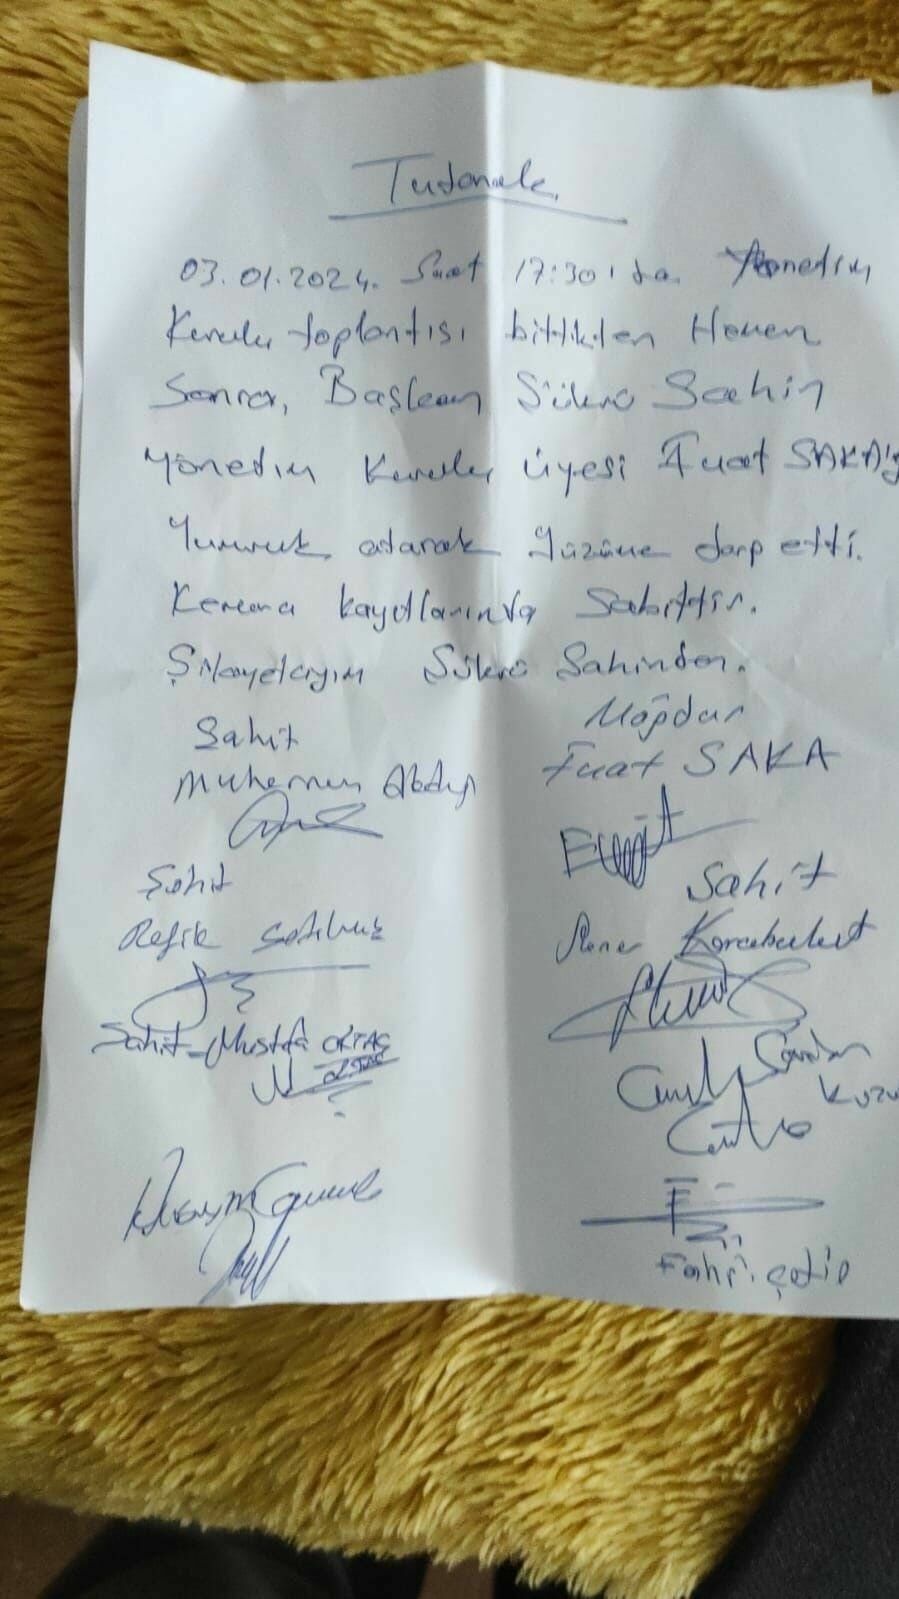 Tutanak
03.01.2024. Saat 17:30'da Yönetim
Kurulu toplantısı bittikten Hemen
Sonra, Başkan Şükrü Şahin
Yönetim Kurulu üyesi Fuat SAKA'y
Yumruk atarak Yüzüne darp etti.
Kemera kayıtlarında Sabittir.
Şikayetçiyim Şükrü Şahinden.
Mağdur
Şahit
Fuat SAKA
Muharrem
Şahit
Şahit
Refik
Karabulut
Şahit - Mustafa OKTAŞ
OKTAŞ
Kuzu
Fahri Çetin